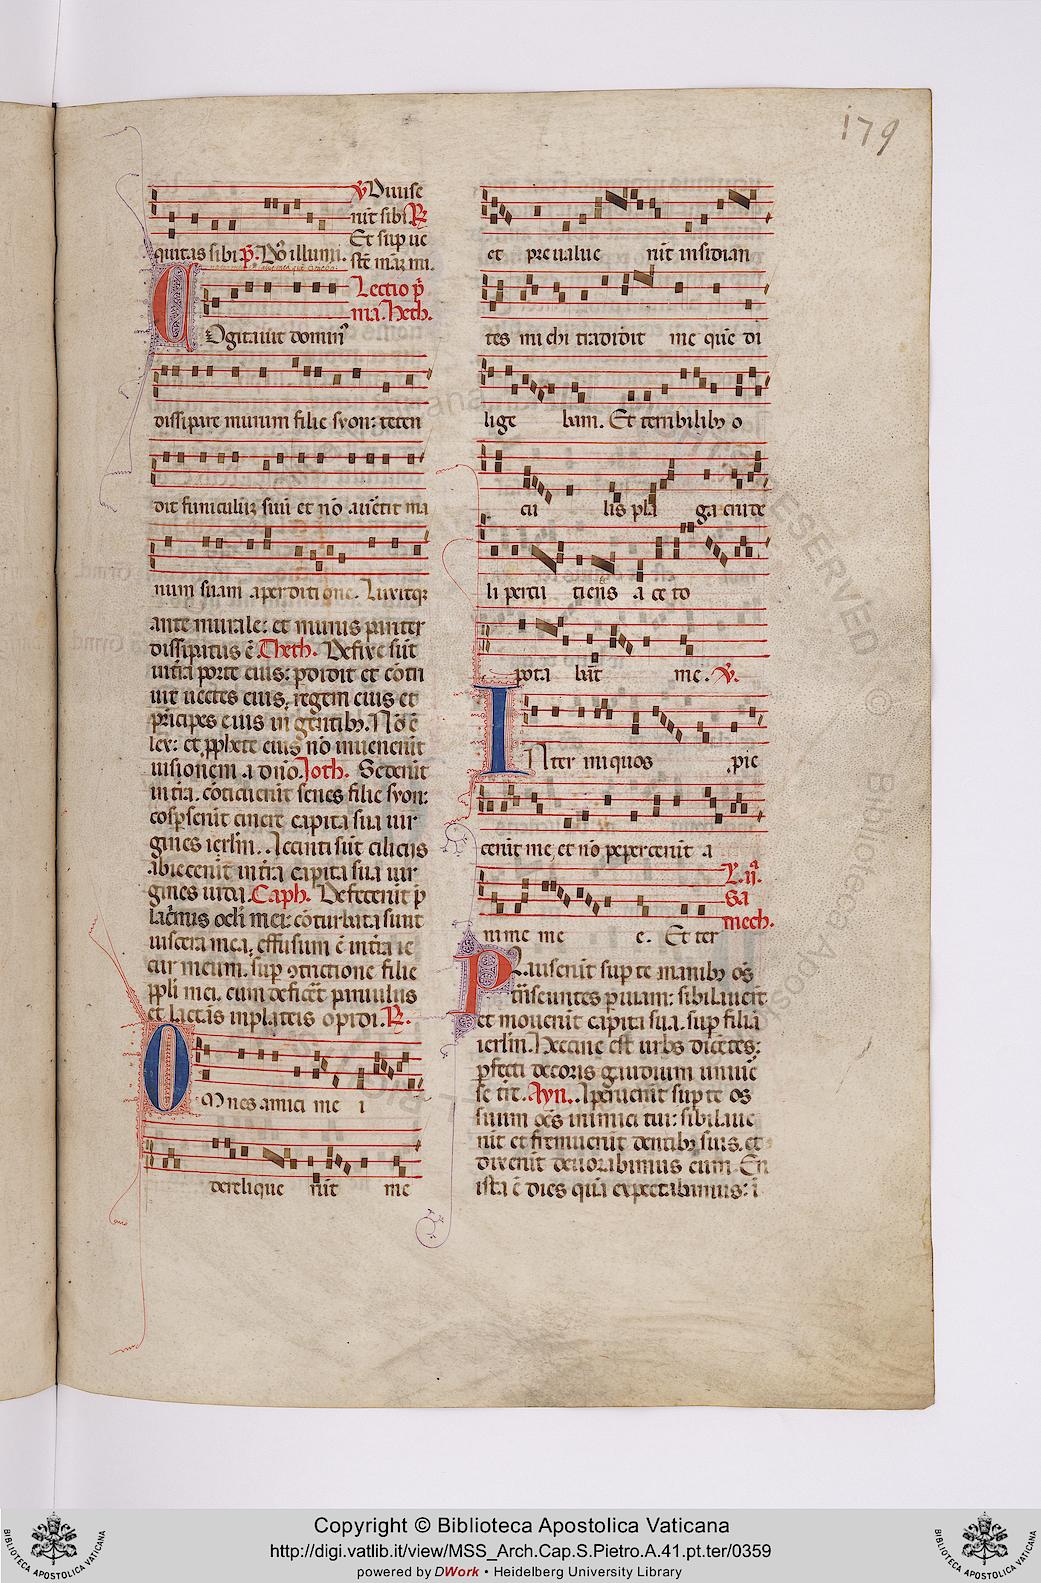 179
quitas sibi p̄. Dn̄s illumi.
℣ Diuise
rūt sibi ℟
Et sup ue
stē mā mi.
Lectio p̄
ma. Heth.
Cogitauit domin9
dissipare murum filie syon: teten
dit funiculum suū et nō auertit ma
num suam aperditione. Luxitq;
ante murale: et murus pariter
dissipatus ē. Theth. Defixe sūt
in tra porte eius: pdidit et cōtri
uit uectes eius, regem eius et
principes eius in gentib9. Nō ē
lex: et pphete eius nō inuenerūt
uisionem a dn̄o. Joth. Sederūt
in tra. coticuerūt senes filie syon:
cōspserūt cinere capita sua uir
gines ierl̄m. Accincti sūt ciliciis
abiecerūt in tra capita sua uir
gines iuda. Caph. Defecerūt p̄
lacrimis ocl̄i mei: cōturbata sunt
uiscera mea, effusum ē in tra ie
cur meum. sup ɔtritione filie
ppl̄i mei. cum deficēt paruulus
et lactās inplateis opidi. ℟.
OMnes amici me i
derelique rūt me
et preualue rūt insidian
tes michi tradidit me quē di
lige bam. Et terribilib9 o
cu lis pla ga crude
li percu tiētis a ce to
pota bāt me. ℣.
INter iniquos pie
cerūt me, et nō pepercerūt a
nime me e. Et ter
L. ij.
Sa
mech.
PLauserūt sup te manib9 oēs
trāseuntes p uiam: sibilauerūt
et mouerūt capita sua. sup filiā
ierl̄m. Heccine est urbs dicētes:
pfecti decoris gaudium uniuer
se tre. Ayn. Aperuerūt sup te os
suum oēs inimici tui: sibilaue
rūt et fremuerūt dentib9 suis. et
dixerūt deuorabimus eum. En
ista ē dies quā expectabamus: ī
Copyright © Biblioteca Apostolica Vaticana
http://digi.vatlib.it/view/MSS_Arch.Cap.S.Pietro.A.41.pt.ter/0359
powered by DWork • Heidelberg University Library